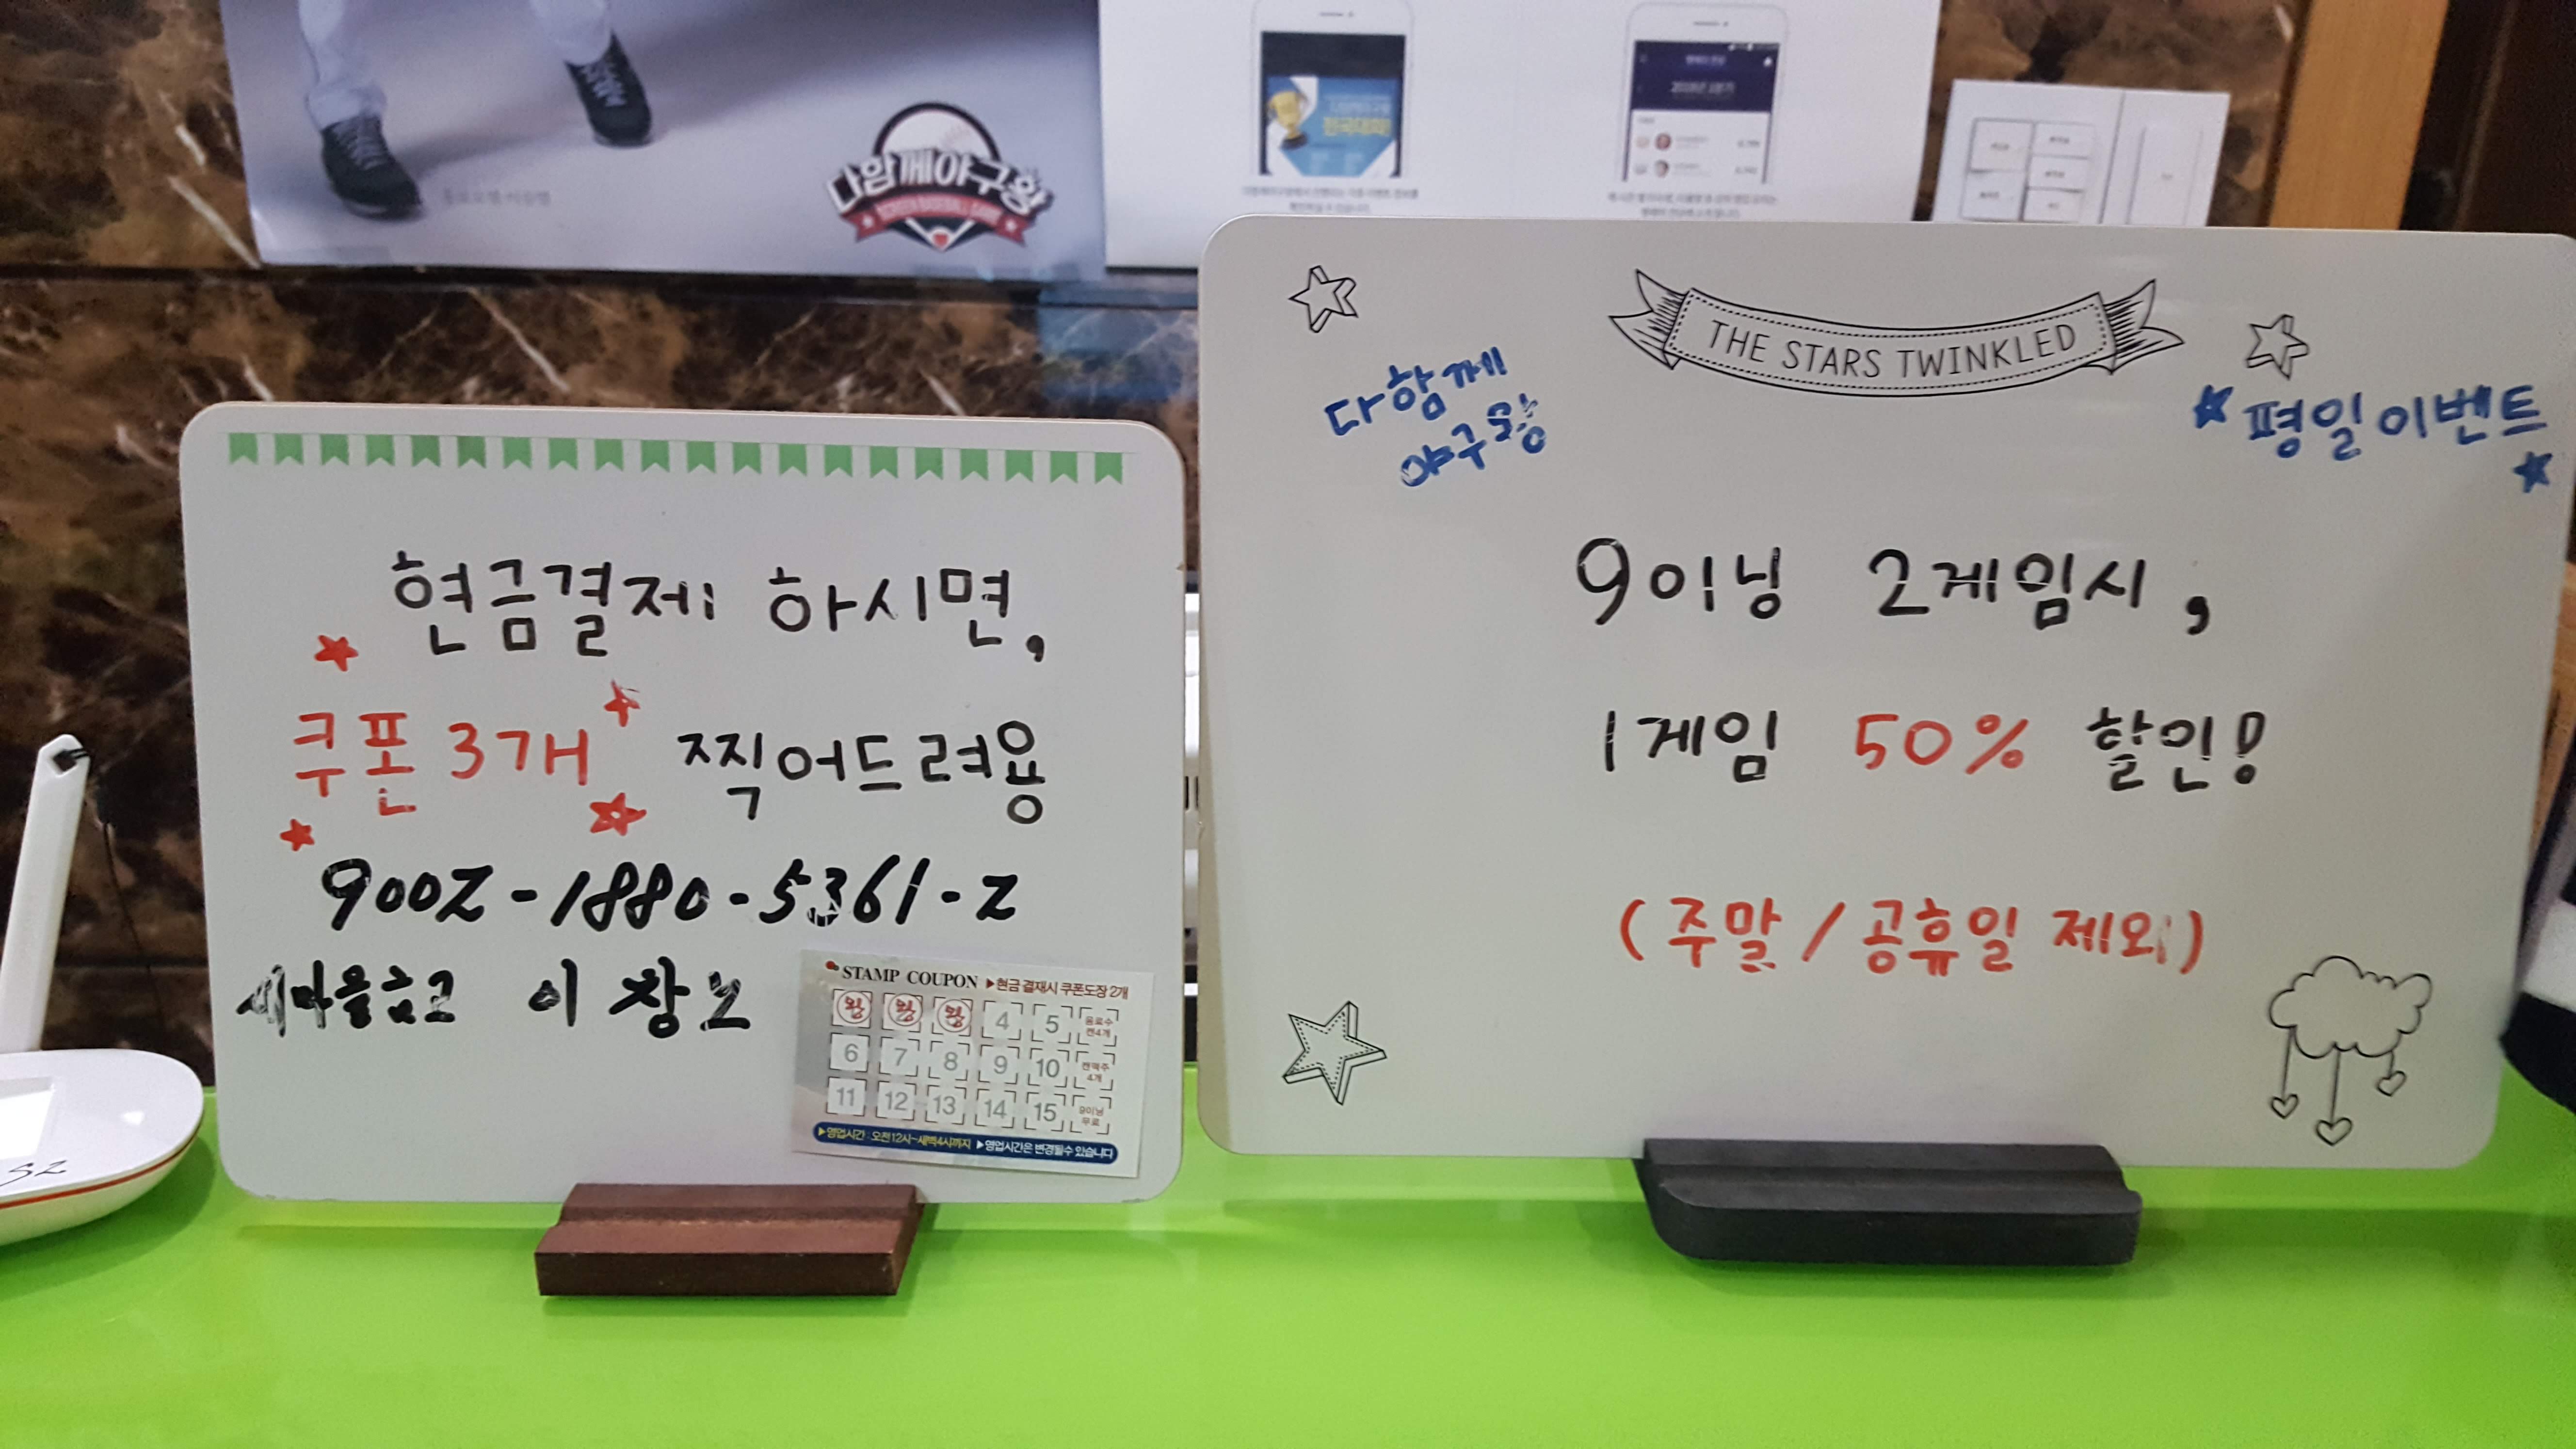 다함께야구왕
전국대회
현금결제 하시면,
쿠폰 3개 찍어드려용
900Z-1880-5361-Z
새마을금고 이창노
STAMP COUPON ▶현금 결재시 쿠폰도장 2개
왕 왕 왕 4 5 음료수 캔4개
6 7 8 9 10 캔맥주 4개
11 12 13 14 15 9이닝 무료
▶영업시간 : 오전12시~새벽4시까지 ▶영업시간은 변경될수 있습니다
THE STARS TWINKLED
다함께
야구왕
평일이벤트
9이닝 2게임시,
1게임 50% 할인!
(주말/공휴일 제외)